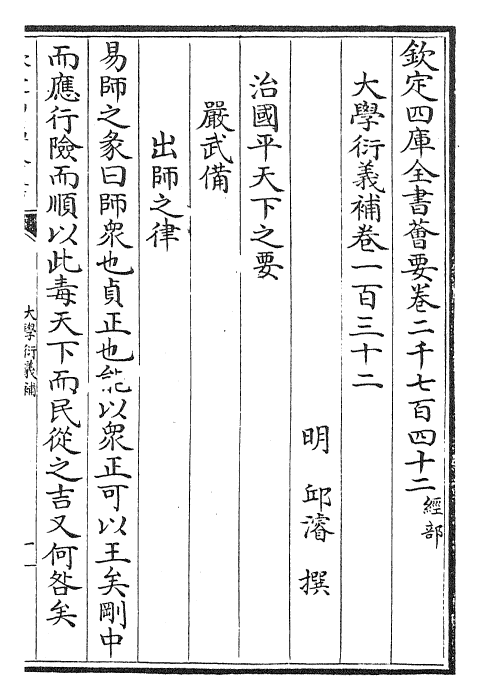 欽定四庫全書薈要卷二千七百四十二經部
大學衍義補卷一百三十二
明 邱濬 撰
治國平天下之要
嚴武備
出師之律
易師之彖曰師眾也貞正也能以眾正可以王矣剛中
而應行險而順以此毒天下而民從之吉又何咎矣
大學衍義補
一